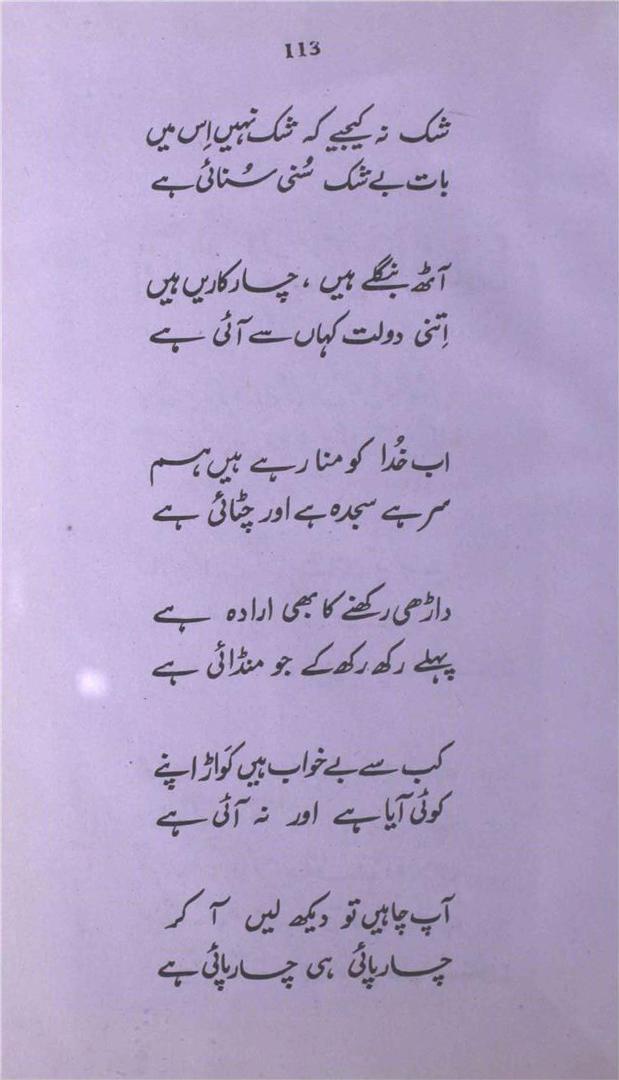 113
شک نہ کیجیے کہ شک نہیں اِس میں
بات بے شک سُنی سُنائی ہے
آٹھ بنگلے ہیں ، چار کاریں ہیں
اِتنی دولت کہاں سے آئی ہے
اب خُدا کو منا رہے ہیں ہم
سر ہے سجدہ ہے اور چٹائی ہے
داڑھی رکھنے کا بھی ارادہ ہے
پہلے رکھ رکھ کے جو منڈائی ہے
کب سے بے خواب ہیں کَواڑ اپنے
کوئی آیا ہے اور نہ آئی ہے
آپ چاہیں تو دیکھ لیں آ کر
چارپائی ہی چارپائی ہے